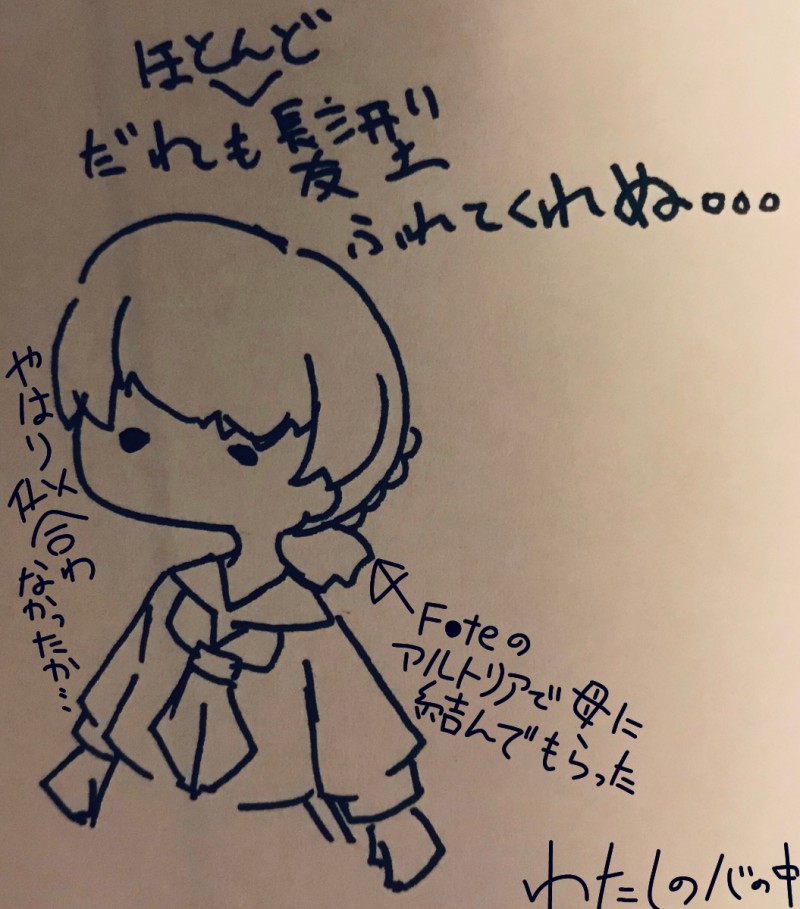 ほとんど
だれも髪型
ふれてくれぬ...
やはり似合わなかったか...
F●teの
アルトリアで母に
結んでもらった
わたしの心の中